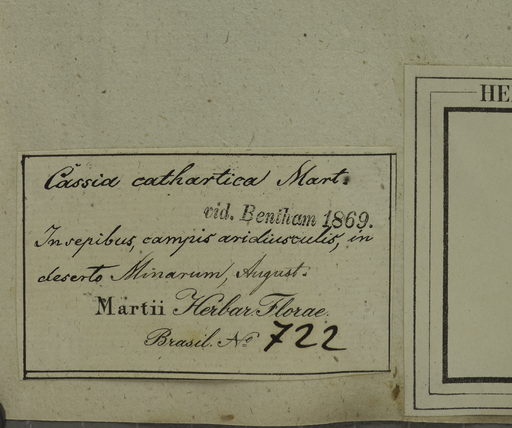 Cassia cathartica Mart.
vid. Bentham 1869.
In sepibus, campis aridiusculis, in
deserto Minarum, August.
Martii Herbar. Florae
Brasil. No 722
HE